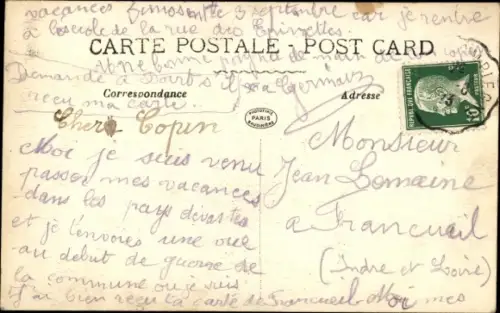 vacances finissent le 3 septembre car je rentre
à l'école de la rue des Epinettes
CARTE POSTALE - POST CARD
Une bonne poignée de main de ton copin
Demande à s'il a Germain
reçu ma carte.
Correspondance
Adresse
PARIS
Cher Copin
Moi je suis venu
passer mes vacances
dans les pays dévastés
et je t'envoies une vue
au début de guerre de
la commune ou je suis
J'ai bien reçu ta carte de Francueil Moi mes
Monsieur
Jean Lemaine
a Francueil
(Indre et Loire)